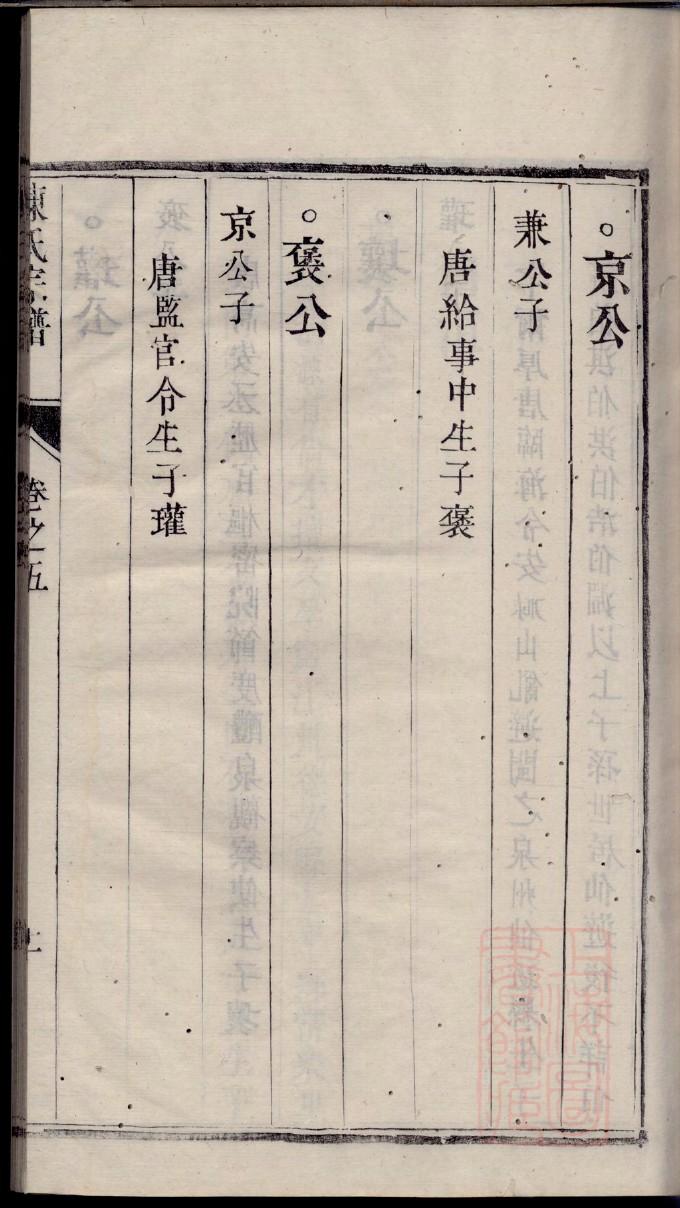 。京公
兼公子
唐給事中生子褒
。褒公
京公子
唐監官令生子瓘
陳氏宗譜
卷之五